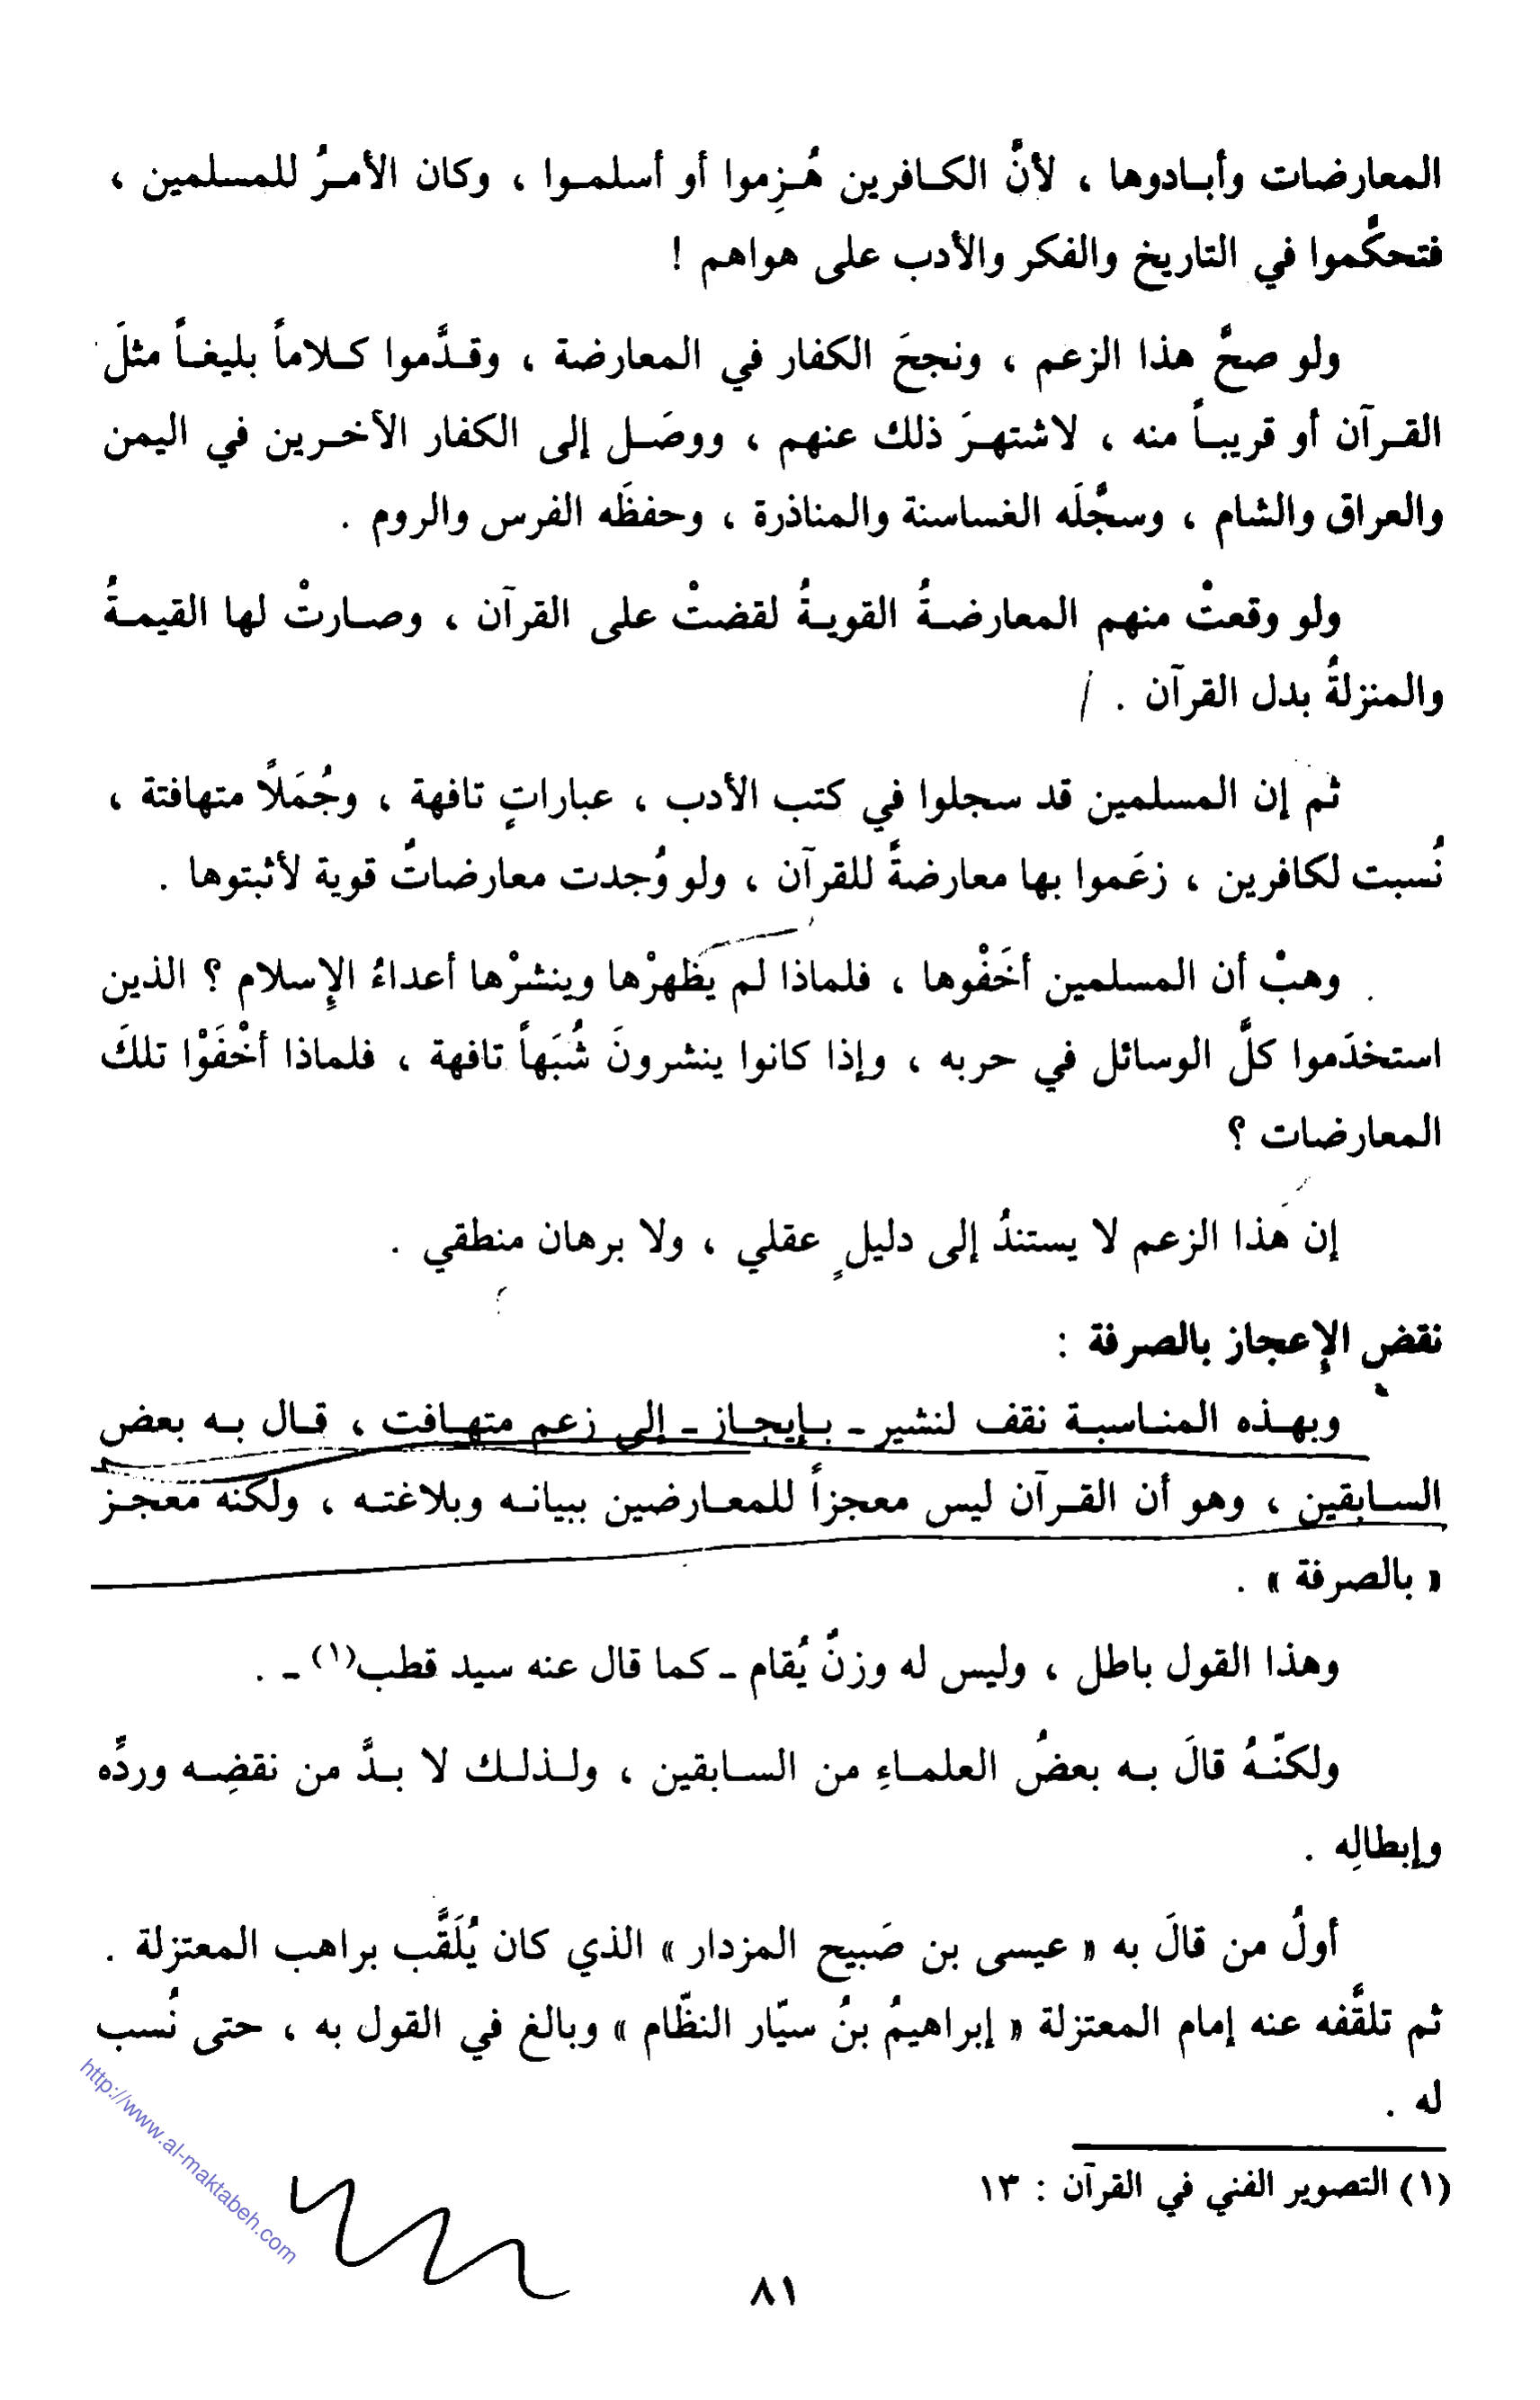 المعارضات وأبـادوها ، لأنَّ الكـافرين هُـزِموا أو أسلمـوا ، وكان الأمـرُ للمسلمين ،
فتحكَّموا في التاريخ والفكر والأدب على هواهم !
ولو صحَّ هذا الزعم ، ونجحَ الكفار في المعارضة ، وقـدَّموا كـلاماً بليغـاً مثلَ
القـرآن أو قريبـاً منه ، لاشتهـرَ ذلك عنهم ، ووصَـل إلى الكفار الآخـرين في اليمن
والعراق والشام ، وسجَّلَه الغساسنة والمناذرة ، وحفظَه الفرس والروم .
ولو وقعتْ منهم المعارضـةُ القويـةُ لقضتْ على القرآن ، وصـارتْ لها القيمـةُ
والمنزلةُ بدل القرآن .
ثم إن المسلمين قد سجلوا في كتب الأدب ، عباراتٍ تافهة ، وجُمَلاً متهافتة ،
نُسبت لكافرين ، زعَموا بها معارضةً للقرآن ، ولو وُجدت معارضاتٌ قوية لأثبتوها .
وهبْ أن المسلمين أخَفْوها ، فلماذا لم يظهرْها وينشرْها أعداءُ الإسلام ؟ الذين
استخدَموا كلَّ الوسائل في حربه ، وإذا كانوا ينشرونَ شُبَهاً تافهة ، فلماذا أخْفَوْا تلكَ
المعارضات ؟
إن هذا الزعم لا يستندُ إلى دليلٍ عقلي ، ولا برهان منطقي .
نقض الإعجاز بالصرفة :
وبهـذه المنـاسبـة نقف لنشير ـ بـإيجـاز ـ إلى زعم متهـافت ، قـال بـه بعض
السـابقين ، وهو أن القـرآن ليس معجزاً للمعـارضين ببيانـه وبلاغتـه ، ولكنه معجـز
« بالصرفة » .
وهذا القول باطل ، وليس له وزنٌ يُقام ـ كما قال عنه سيد قطب(١) ـ .
ولكنّـهُ قالَ بـه بعضُ العلمـاءِ من السـابقين ، ولـذلـك لا بـدَّ من نقضِـه وردِّه
وإبطالِه .
أولُ من قالَ به « عيسى بن صَبيح المزدار » الذي كان يُلَقَّب براهب المعتزلة .
ثم تلقَّفه عنه إمام المعتزلة « إبراهيمُ بنُ سيّار النظّام » وبالغ في القول به ، حتى نُسب
له .
(١) التصوير الفني في القرآن : ١٣
٨١
http://www.al-maktabeh.com